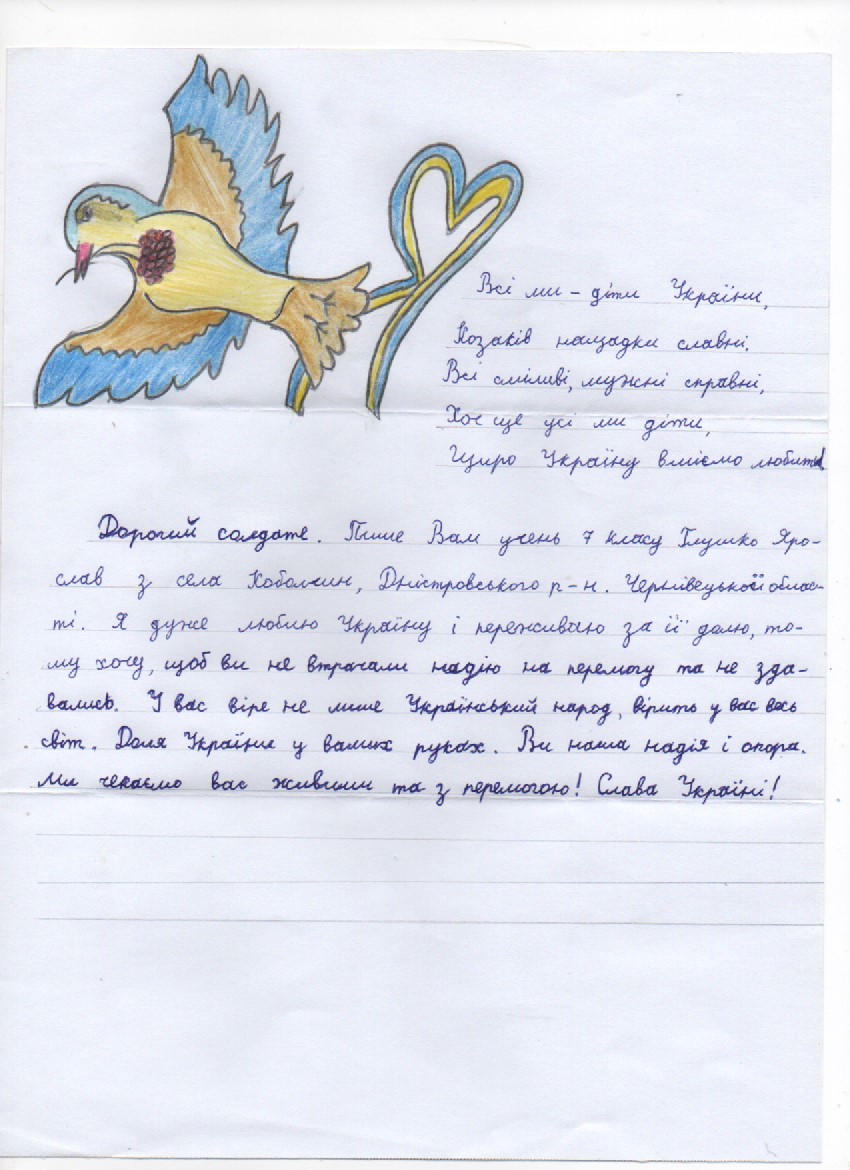 Всі ми – діти України,
Козаків нащадки славні.
Всі сміливі, мужні справні,
Хоч ще усі ми діти,
Щиро Україну вміємо любити!
Дорогий солдате. Пише Вам учень 7 класу Глушко Яро-
слав з села Коболчин, Дністровського р-н. Чернівецької облас-
ті. Я дуже люблю Україну і переживаю за її долю, то-
му хочу, щоб ви не втрачали надію на перемогу та не зда-
вались. У вас віре не лише Український народ, вірить у вас весь
світ. Доля України у ваших руках. Ви наша надія і опора.
Ми чекаємо вас живими та з перемогою! Слава Україні!